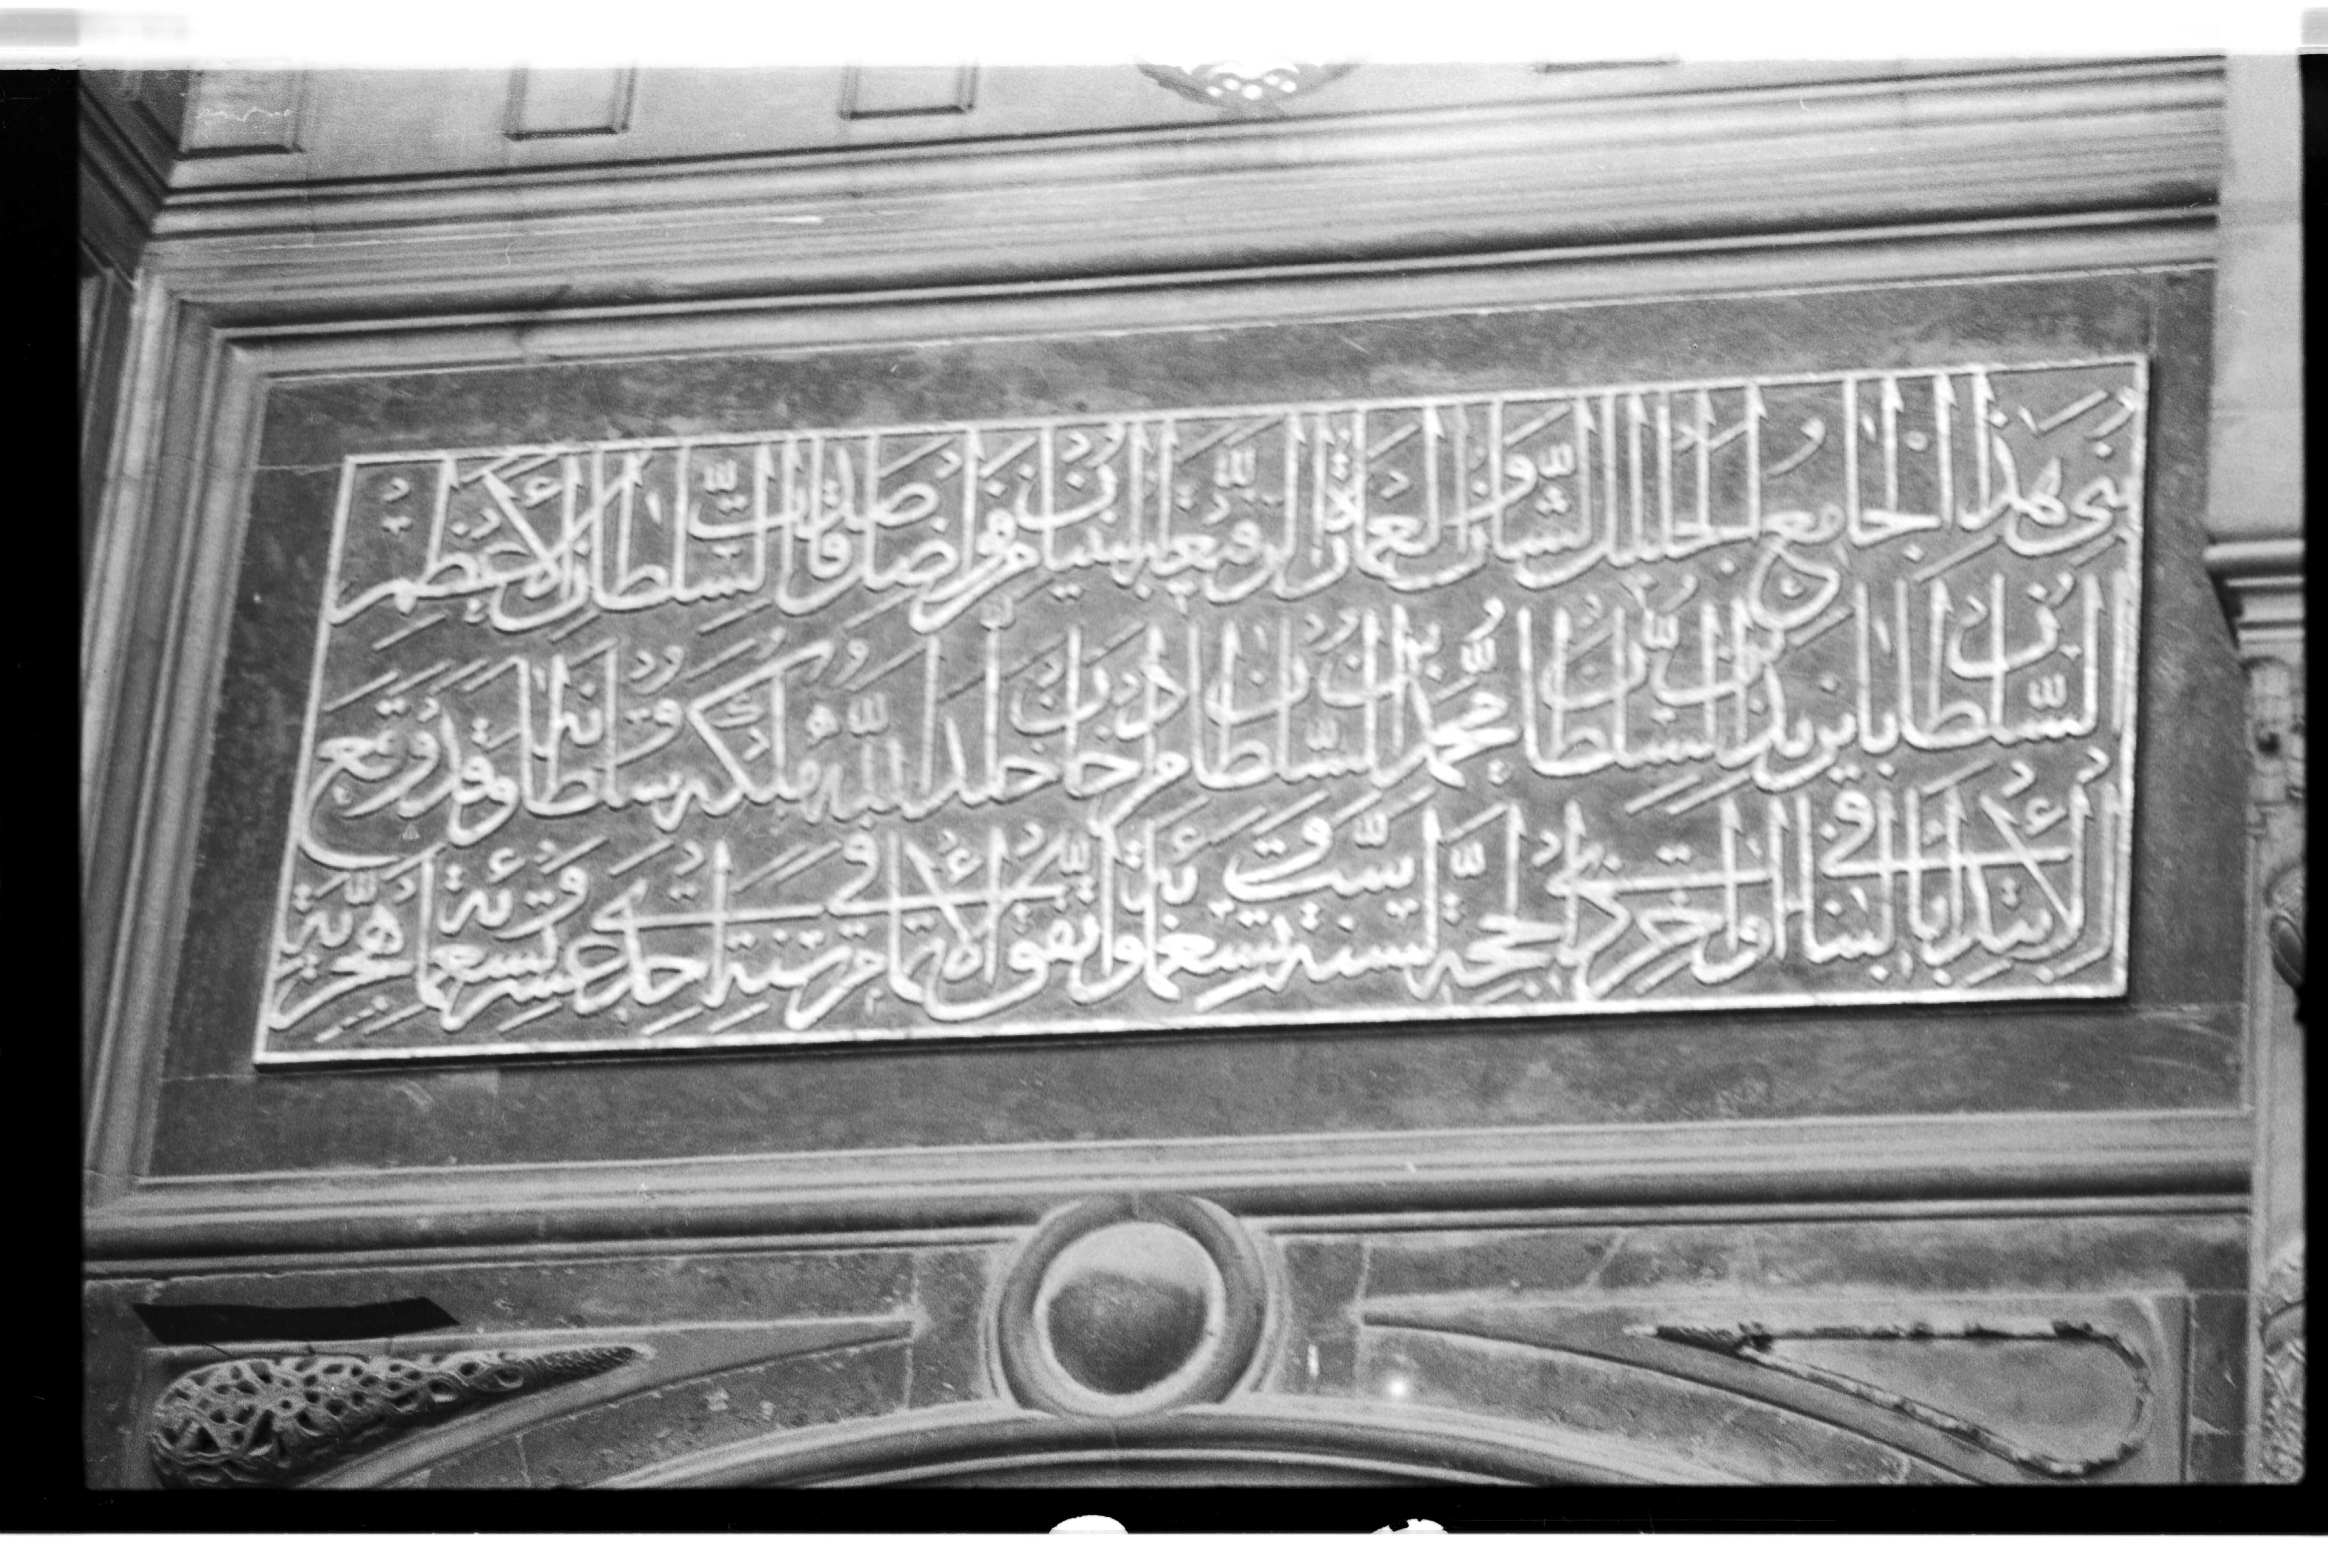 بنى هذا الجامع الجليل الشان والعمارة الرفيعة البنيان من فواضل صدقات السلطان الأعظم
السلطان بايزيد خان بن السلطان محمد خان بن السلطان مراد خان خلد الله ملكه وسلطانه وقد وقع
الأبتداء بالبناء في اواخر ذي الحجة لسنة ست وتسعمائة واتفق الأتمام في سنة احدى عشر وتسعمائة هجرية